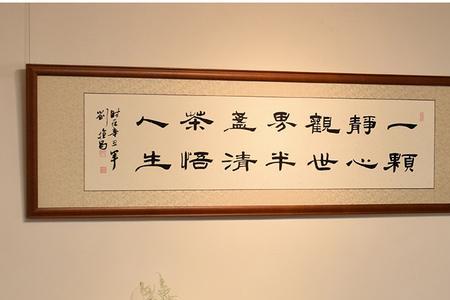 一顆
靜心
觀世
界半
盞清
茶悟
人生
时在辛丑年
劉